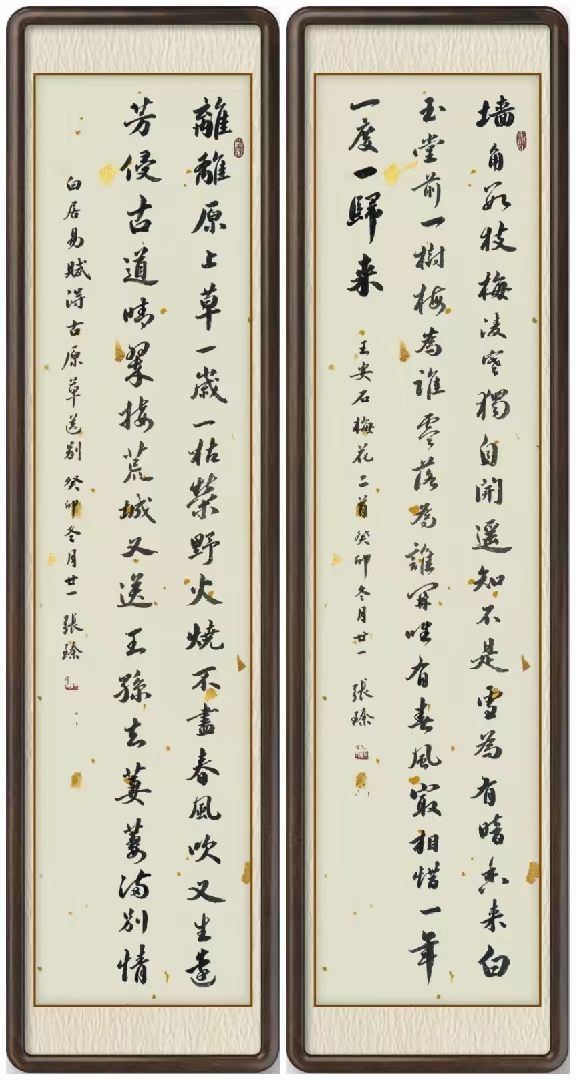 墙角数枝梅凌寒獨自開遥知不是雪為有暗香来白
玉堂前一樹梅為誰零落為誰開唯有春風最相惜一年
一度一歸来
王安石梅花二首癸卯冬月廿一 張瑧
離離原上草一歲一枯榮野火燒不盡春風吹又生遠
芳侵古道晴翠接荒城又送王孫去萋萋滿别情
白居易賦得古原草送别癸卯冬月廿一 張瑧